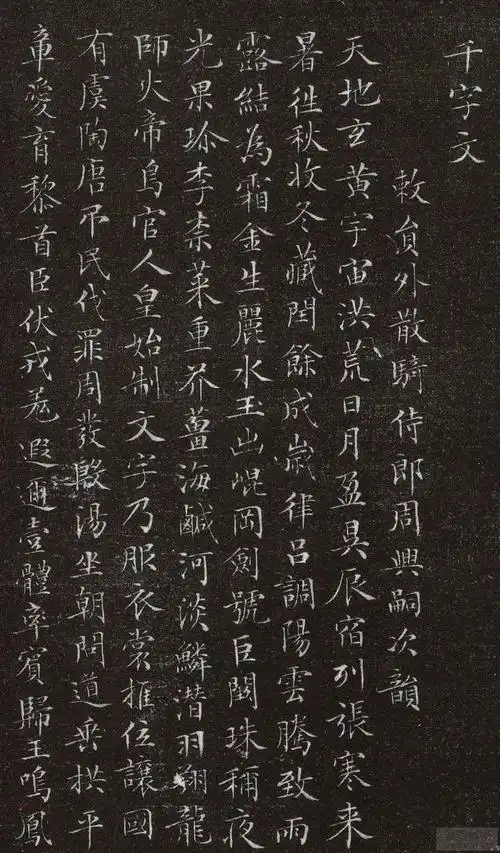 千字文
敕員外散騎侍郎周興嗣次韻
天地玄黃宇宙洪荒日月盈昃辰宿列張寒来
暑往秋收冬藏閏餘成歲律呂調陽雲騰致雨
露結為霜金生麗水玉出崐岡劍號巨闕珠稱夜
光果珍李柰菜重芥薑海鹹河淡鱗潛羽翔龍
師火帝鳥官人皇始制文字乃服衣裳推位讓國
有虞陶唐吊民伐罪周發殷湯坐朝問道垂拱平
章愛育黎首臣伏戎羌遐邇壹體率賓歸王鳴鳳